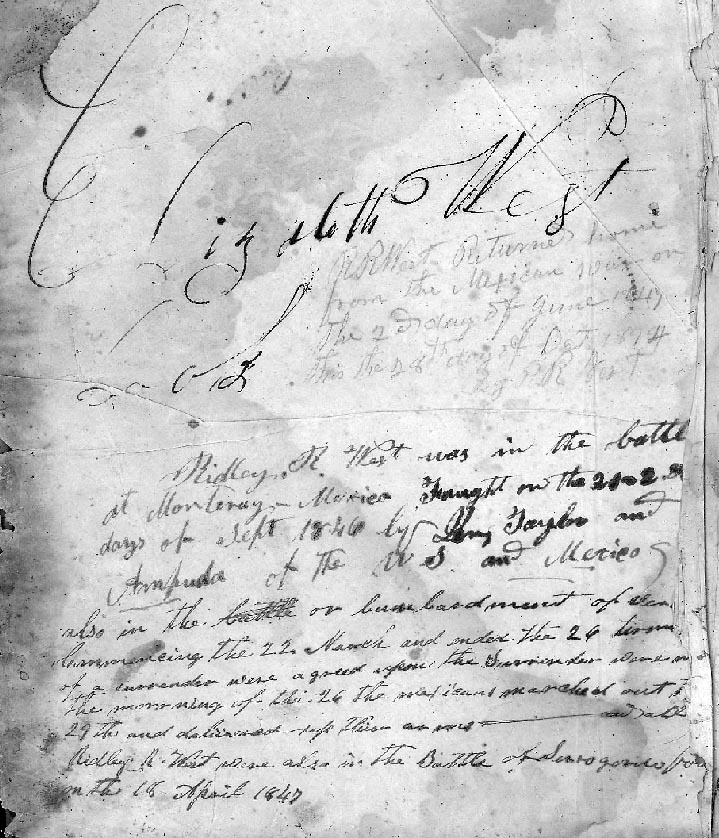 Elizabeth West
R R West Returned home
from the Mexican war on
the 23 day of June 1847
this the 28th day of Oct 1874
by R R West
Ridley R. West was in the battle
at Monteray Mexico Faught on the 21-2
days of Sept 1846 by Taylor and
Ampuda of the U S and Mexico
also in the battle or bumbardment of
Commencing the 22 March and the 26
of a surrender were agreed upon the Surrender were
the morning of the 26 the mexicans marched out
29th and delivered up their arms
Ridley R. West were also in the Battle of
on the 18 April 1847